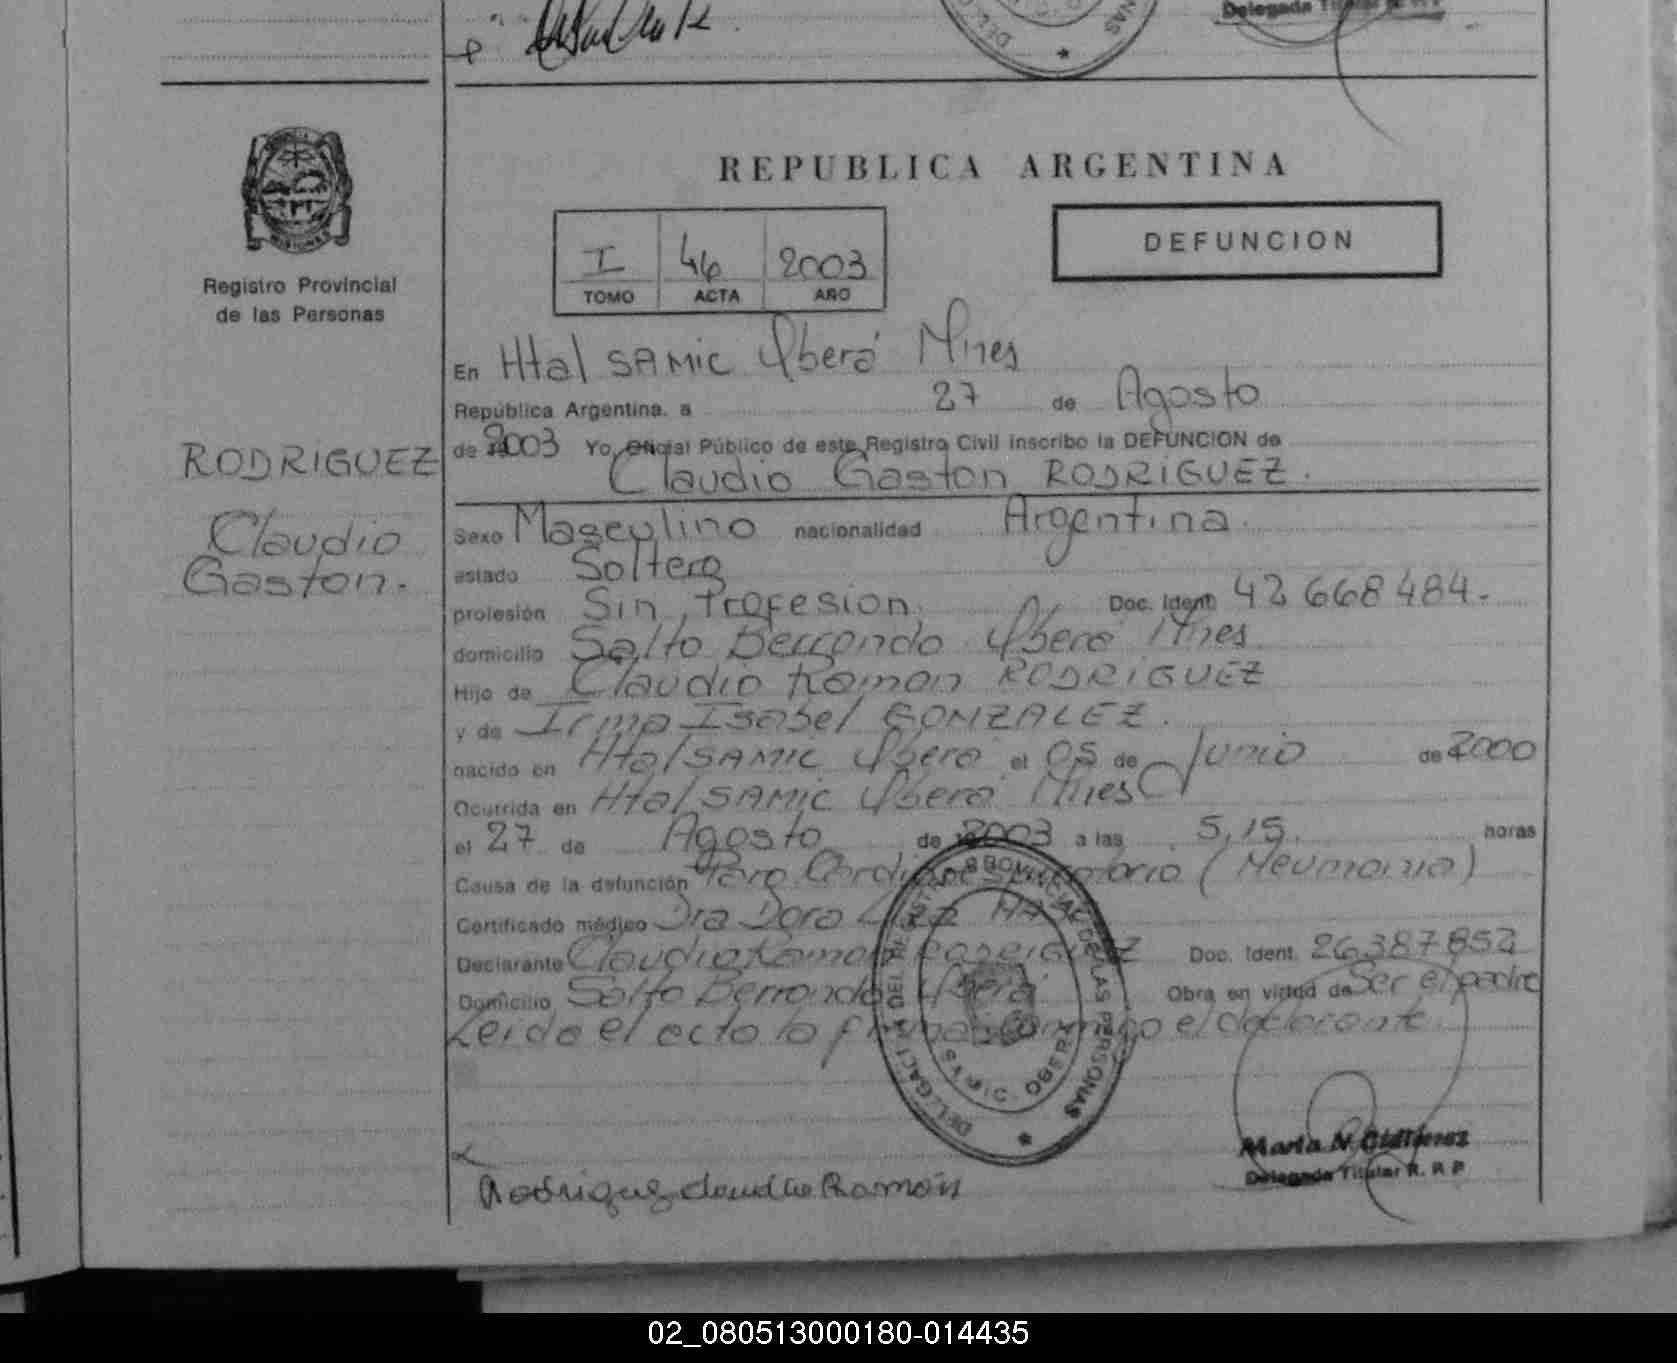 Delegada Titular R. P. P
DEL
NAS
REPUBLICA ARGENTINA
I 46 2003
TOMO ACTA AÑO
DEFUNCION
MISIONES
Registro Provincial
de las Personas
RODRIGUEZ
Claudio
Gaston.
En Htal SAMIC Yberá Mnes
República Argentina, a 27 de Agosto
de 2003 Yo, Oficial Público de este Registro Civil inscribo la DEFUNCION de
Claudio Gaston RODRIGUEZ.
Sexo Masculino nacionalidad Argentina.
estado Soltero
profesión Sin Profesion. Doc. Ident. 42 668 484.
domicilio Salto Berrondo Yberá Mnes.
Hijo de Claudio Ramon RODRIGUEZ
y de Irma Isabel GONZALEZ.
nacido en Htal SAMIC Yberá el 05 de Junio de 2000
Ocurrida en Htal SAMIC Yberá Mnes
el 27 de Agosto de 2003 a las 5,15. horas
Causa de la defunción Paro Cardiorespiratorio (Neumonia)
Certificado médico Dra Dora
Declarante Claudio Ramon RODRIGUEZ Doc. Ident. 26387852
Domicilio Salto Berrondo Yberá Obra en virtud de Ser el padre
Leido el acto lo firma conmigo el declarante.
DELEGACION DEL REGISTRO PROVINCIAL DE LAS PERSONAS
Rodriguez Claudio Ramón
Delegada Titular R. P. P
02_080513000180-014435